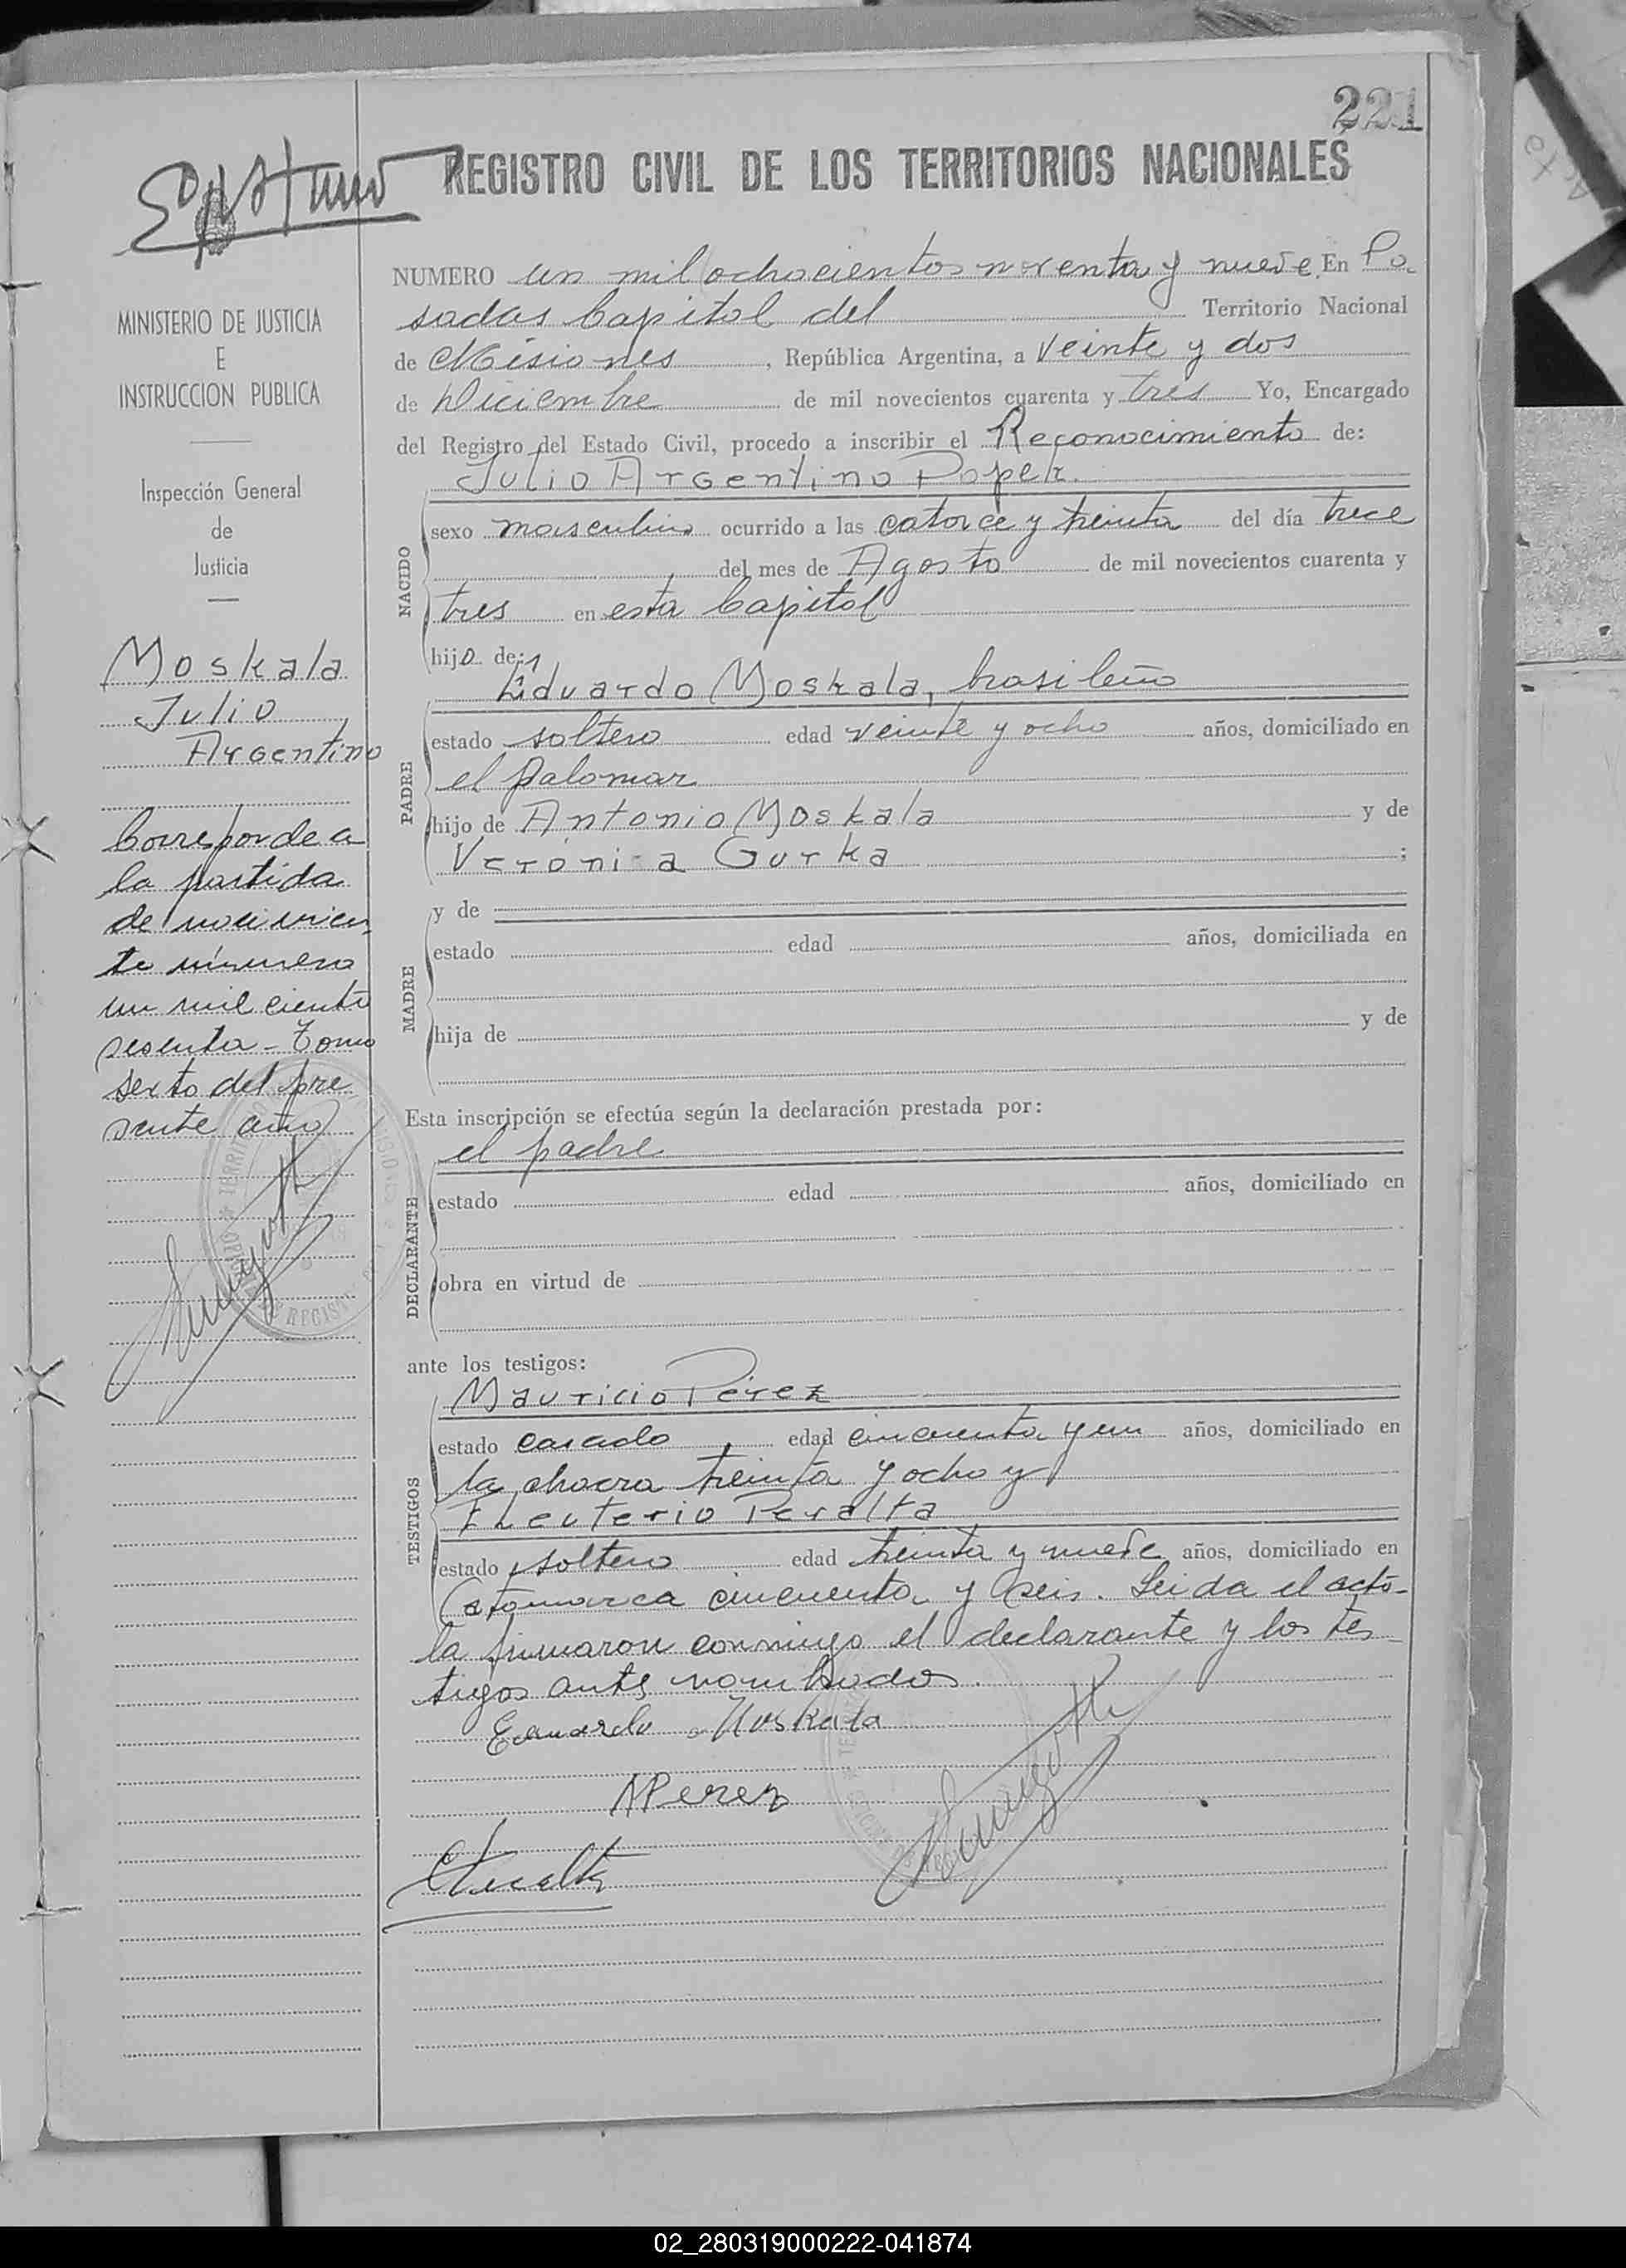 221
REGISTRO CIVIL DE LOS TERRITORIOS NACIONALES
MINISTERIO DE JUSTICIA
E
INSTRUCCION PUBLICA
Inspección General
de
Justicia
Moskala
Julio
Argentino
Corresponde a
la partida
de nacimien
to número
un mil ciento
sesenta - Tomo
sexto del pre
sente año
NUMERO un mil ochocientos noventa y nueve. En Po-
sadas Capital del Territorio Nacional
de Misiones, República Argentina, a veinte y dos
de Diciembre de mil novecientos cuarenta y tres Yo, Encargado
del Registro del Estado Civil, procedo a inscribir el Reconocimiento de:
Julio Argentino
NACIDO
sexo masculino ocurrido a las catorce y treinta del día trece
del mes de Agosto de mil novecientos cuarenta y
tres en esta Capital
hijo de:
PADRE
Eduardo Moskala, brasileño
estado soltero edad veinte y ocho años, domiciliado en
el palomar
hijo de Antonio Moskala y de
Verónica Gurka ;
MADRE
y de
estado edad años, domiciliada en
hija de y de
Esta inscripción se efectúa según la declaración prestada por:
el padre
DECLARANTE
estado edad años, domiciliado en
obra en virtud de
ante los testigos:
TESTIGOS
Mauricio Pérez
estado casado edad cincuenta y un años, domiciliado en
la chacra treinta y ocho y
Eleuterio Peralta
estado soltero edad treinta y nueve años, domiciliado en
Catamarca cincuenta y seis. Leida el acta-
la firmaron conmigo el declarante y los tes-
tigos antes nombrados.
Eduardo Moskala
MPerez
02_280319000222-041874